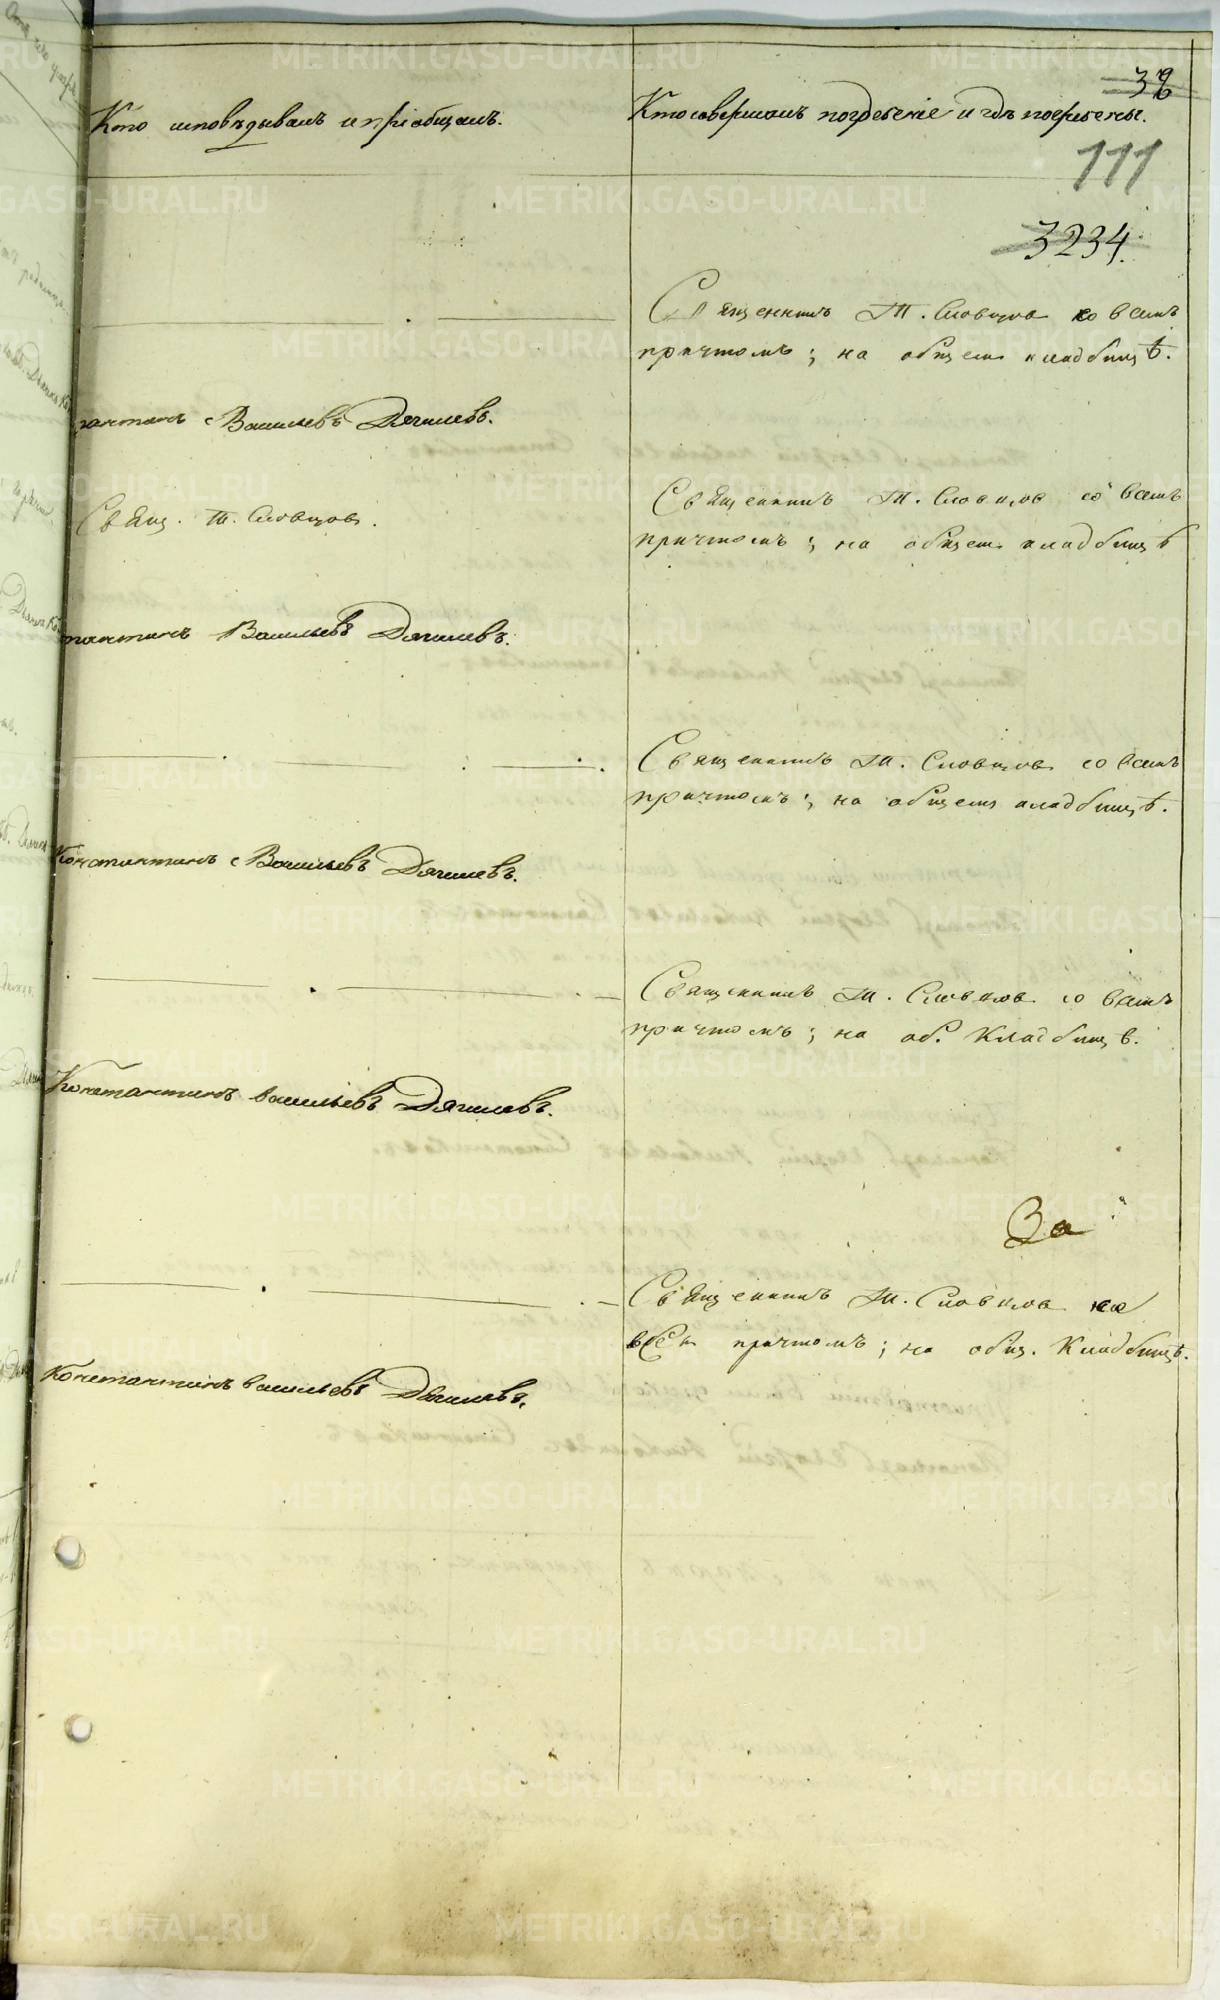 Кто исповѣдывалъ и пріобщалъ.
Кто совершалъ погребеніе и гдѣ погребены.
111
3234.
Священникъ Т. Словцовъ со всемъ
причтомъ; на общем кладбищѣ.
тантинъ Васильевъ Дягилевъ.
Свящ. Т. Словцовъ.
Священникъ Т. Словцов со всемъ
причтомъ; на общем кладбищѣ
тантинъ Васильевъ Дягилевъ.
Священникъ Т. Словцов со всемъ
причтомъ; на общем кладбищѣ.
Константинъ Васильевъ Дягилевъ.
Священникъ Т. Словцов со всемъ
причтомъ; на об. Кладбищѣ.
Константинъ Васильевъ Дягилевъ.
За
Священникъ Т. Словцов со
всем причтомъ; на общ. Кладбищѣ.
Константинъ Васильевъ Дягилевъ.
METRIKI.GASO-URAL.RU